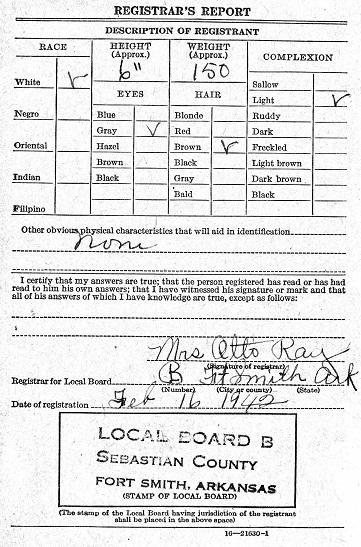 REGISTRAR'S REPORT
DESCRIPTION OF REGISTRANT
RACE
HEIGHT (Approx.)
WEIGHT (Approx.)
COMPLEXION
6"
150
White ✓
EYES
HAIR
Sallow
Light ✓
Negro
Blue
Blonde
Ruddy
Gray ✓
Red
Dark
Oriental
Hazel
Brown ✓
Freckled
Brown
Black
Light brown
Indian
Black
Gray
Dark brown
Bald
Black
Filipino
Other obvious physical characteristics that will aid in identification
None
I certify that my answers are true; that the person registered has read or has had
read to him his own answers; that I have witnessed his signature or mark and that
all of his answers of which I have knowledge are true, except as follows:
Mrs Otto Ray
(Signature of registrar)
Registrar for Local Board B Ft Smith Ark
(Number) (City or county) (State)
Date of registration Feb 16 1942
LOCAL BOARD B
SEBASTIAN COUNTY
FORT SMITH, ARKANSAS
(STAMP OF LOCAL BOARD)
(The stamp of the Local Board having jurisdiction of the registrant
shall be placed in the above space)
16—21630-1